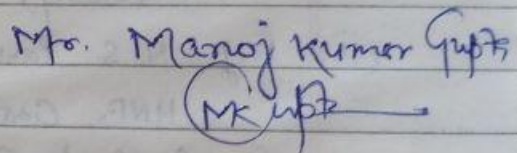 Mr. Manoj Kumar Gupta
MKGupta